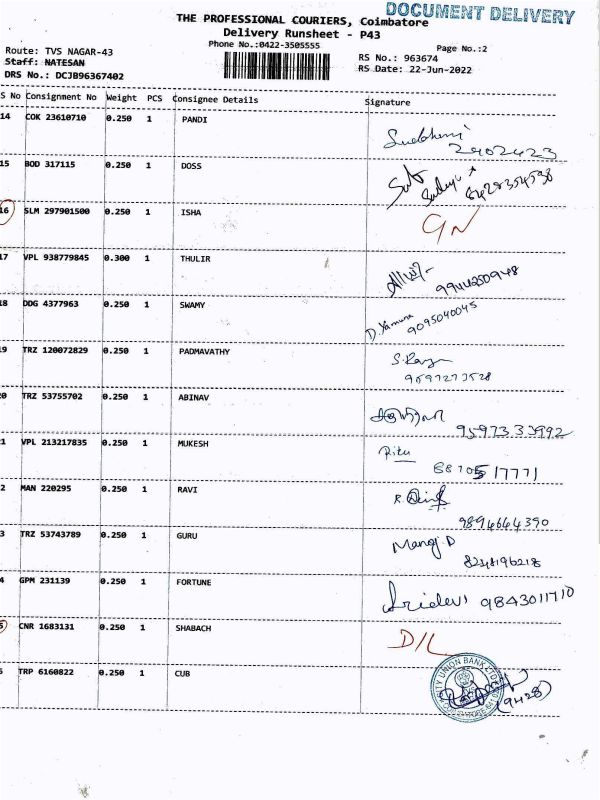 DOCUMENT DELIVERY
THE PROFESSIONAL COURIERS, Coimbatore
Delivery Runsheet - P43
Phone No.:0422-3505555
Page No.:2
Route: TVS NAGAR-43
RS No.: 963674
Staff: NATESAN
RS Date: 22-Jun-2022
DRS No.: DCJB96367402
S No Consignment No Weight PCS Consignee Details Signature
14 COK 23610710 0.250 1 PANDI
2402423
15 BOD 317115 0.250 1 DOSS
16 SLM 297901500 0.250 1 ISHA
17 VPL 938779845 0.300 1 THULIR
9944250948
18 DDG 4377963 0.250 1 SWAMY
D. Yamuna
9095040045
19 TRZ 120072829 0.250 1 PADMAVATHY
9597273528
0 TRZ 53755702 0.250 1 ABINAV
9597333992
1 VPL 213217835 0.250 1 MUKESH
Ritu
2 MAN 220295 0.250 1 RAVI
9894664390
3 TRZ 53743789 0.250 1 GURU
Manoj.D
8248196218
4 GPM 231139 0.250 1 FORTUNE
Sridevi 9843011710
5 CNR 1683131 0.250 1 SHABACH
D/L
TRP 6160822 0.250 1 CUB
UNION BANK LTD
(9428)